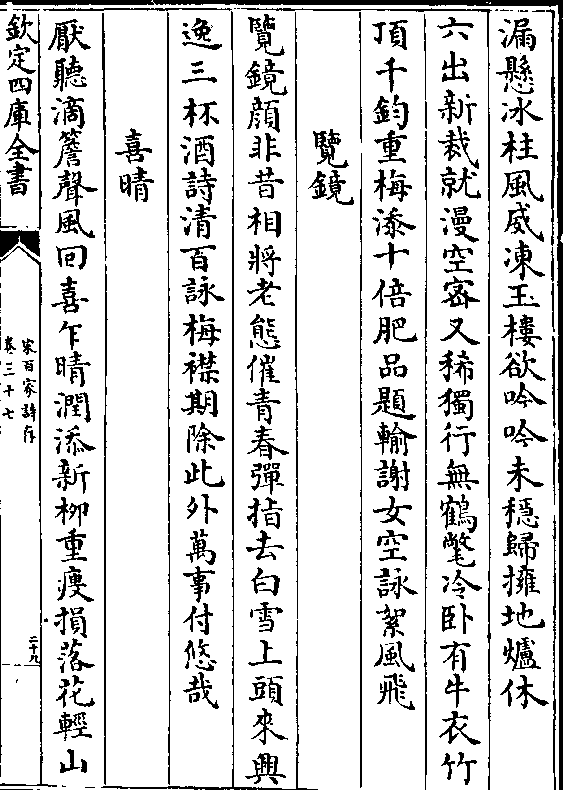 漏懸冰柱風威凍玉樓欲吟吟未穩歸擁地爐休
六出新裁就漫空密又稀獨行無鶴氅冷卧有牛衣竹
頂千鈞重梅添十倍肥品題輸謝女空詠絮風飛
覽鏡
覽鏡顔非昔相將老態催青春彈指去白雪上頭來興
逸三杯酒詩清百詠梅襟期除此外萬事付悠哉
喜晴
厭聽滴簷聲風回喜乍晴潤添新柳重瘦損落花輕山
欽定四庫全書
宋百家詩存
卷三十七
二十九